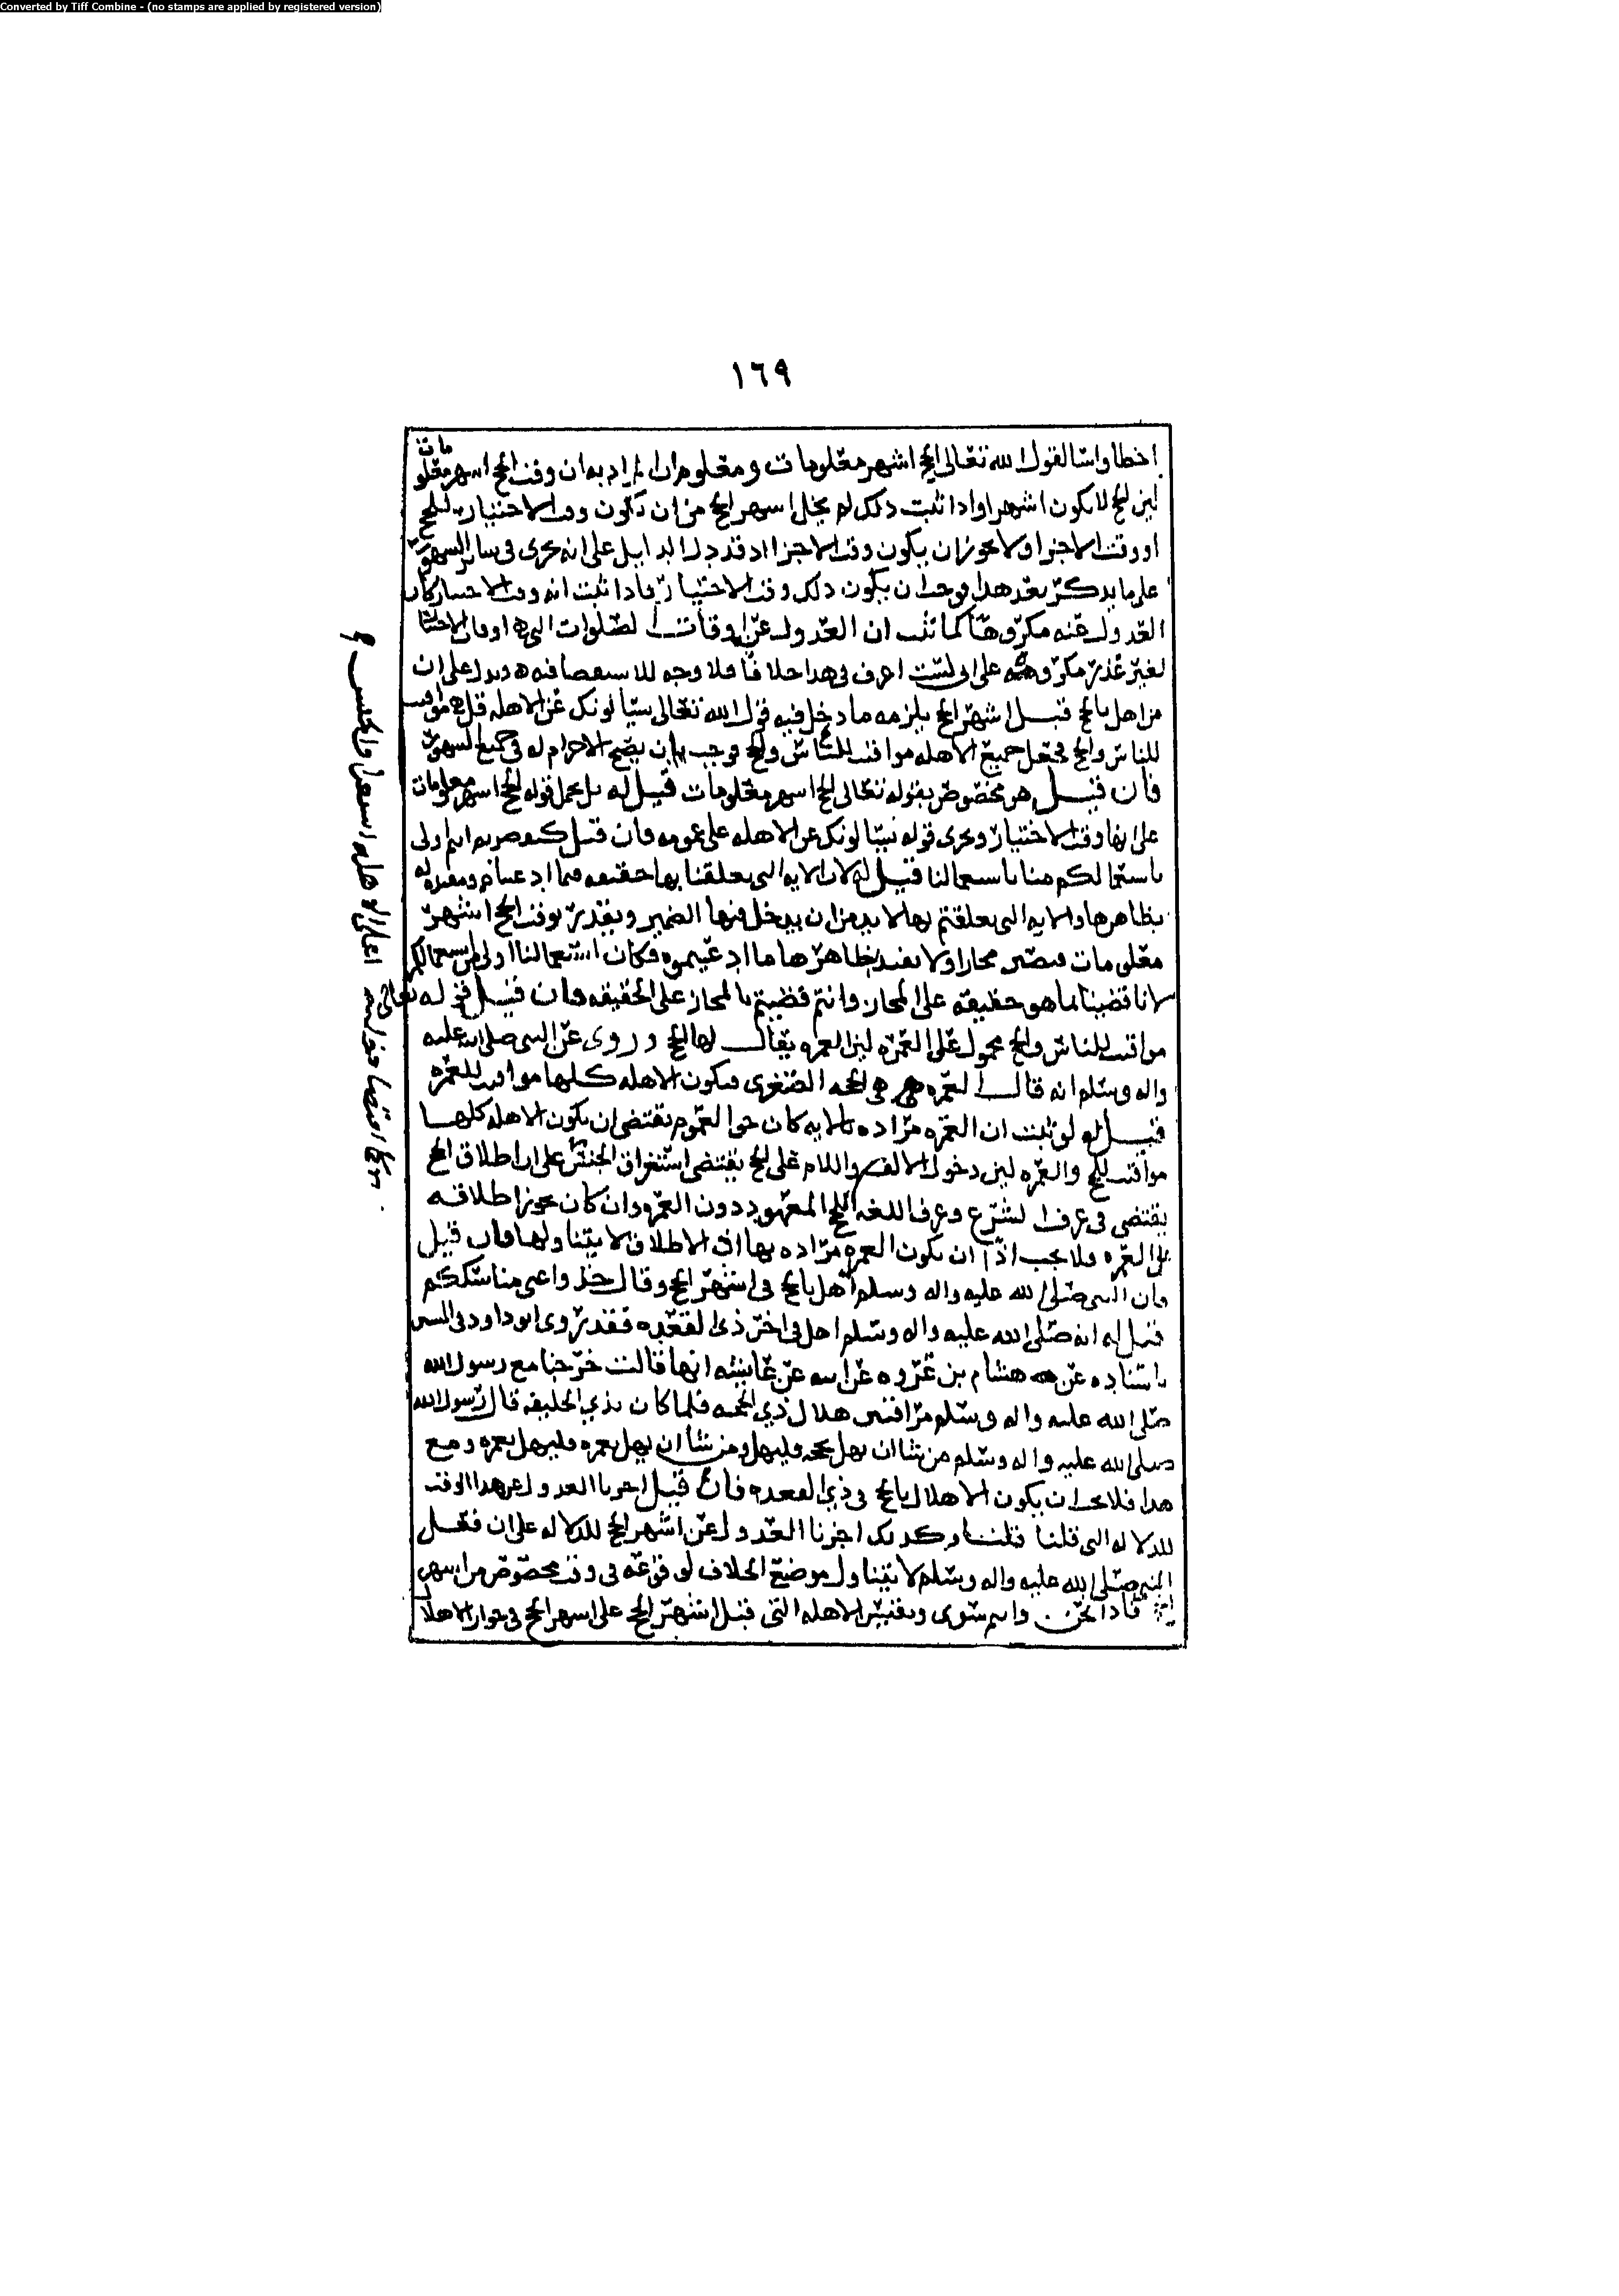 Converted by Tiff Combine - (no stamps are applied by registered version)
١٦٩
اخطا واسا لقول الله تعالى الحج اشهر معلومات ومعلوم ان المراد به ان وقت الحج اشهر معلومات
لين الحج لا يكون اشهرا واذا ثبت ذلك لم يخل اشهر الحج من ان تكون وقت الاختيار للحج
او وقت الاجزا ولا يجوز ان يكون وقت الاجزا اذ قد دل الدليل على انه يجزي في سائر الشهور
على ما يذكر بعد هذا فوجب ان يكون ذلك وقت الاختيار فاذا ثبت انه وقت الاختيار كان
العدول عنه مكروها كما ثبت ان العدول عن اوقات الصلوات التي هي اوقات الاختيار
لغير عذر مكروه على اني لست اعرف في هذا خلافا فلا وجه للاستقصا فيه ويدل على ان
من اهل بالحج قبل اشهر الحج يلزمه ما دخل فيه قول الله تعالى يسالونك عن الاهله قل هي مواقيت
للناس والحج فجعل جميع الاهله مواقيت للناس والحج فوجب ان يصح الاحرام له في جميع الشهور
فان قيل هو مخصوص بقوله تعالى الحج اشهر معلومات قيل له بل نحمل قوله الحج اشهر معلومات
على انها وقت الاختيار ونجري قوله يسالونك عن الاهله على عمومه فان قيل كيف صرتم انتم اولى
باستعمالكم منا باستعمالنا قيل له لان الايه التي تعلقنا بها حقيقه فيما ادعيناه ومفيده له
بظاهرها والايه التي تعلقتم بها لا بد من ان يدخل فيها الضمير وتقدير وقت الحج اشهر
معلومات فتصير مجازا ولا تفيد بظاهرها ما ادعيتموه فكان استعمالنا اولى من استعمالكم
لانا قضينا لما هو حقيقه على المجاز وانتم قضيتم بالمجاز على الحقيقه فان قيل قوله تعالى
مواقيت للناس والحج محمول على العمره لين العمره يقال لها الحج وروى عن النبي صلى الله عليه
واله وسلم انه قال العمره هي الحجه الصغرى فتكون الاهله كلها مواقيت للعمره
قيل له لو ثبت ان العمره مراده بالايه كان حق العموم يقتضي ان تكون الاهله كلها
مواقيت للحج والعمره لين دخول الالف واللام على الحج يقتضي استغراق الجنس على ان اطلاق الحج
يقتضي في عرف الشرع وعرف اللغه الحج المعهود دون العمره وان كان يجوز اطلاقه
على العمره فلا يجب اذا ان تكون العمره مراده بها اذ الاطلاق لا يتناولها فان قيل
فان النبي صلى الله عليه واله وسلم اهل بالحج في اشهر الحج وقال خذوا عني مناسككم
قيل له انه صلى الله عليه واله وسلم اهل في اخر ذي القعده فقد روى ابو داود في السنن
باسناده عن هشام بن عروه عن ابيه عن عايشه انها قالت خرجنا مع رسول الله
صلى الله عليه واله وسلم موافين هلال ذي الحجه فلما كان بذي الحليفه قال رسول الله
صلى الله عليه واله وسلم من شا ان يهل بحجه فليهل ومن شا ان يهل بعمره فليهل بعمره ومع
هذا فلا يجب ان يكون الاهلال بالحج في ذي القعده فان قيل اجزنا العدول عن هذا الوقت
للدلاله التي قلنا قلنا وكذلك اجزنا العدول عن اشهر الحج للدلاله على ان فعل
النبي صلى الله عليه واله وسلم لا يتناول موضع الخلاف لوقوعه في وقت مخصوص من اشهر
الحج فاذا نحن وانتم سوى ونقيس الاهله التي قبل اشهر الحج على اشهر الحج في جواز الاهلال